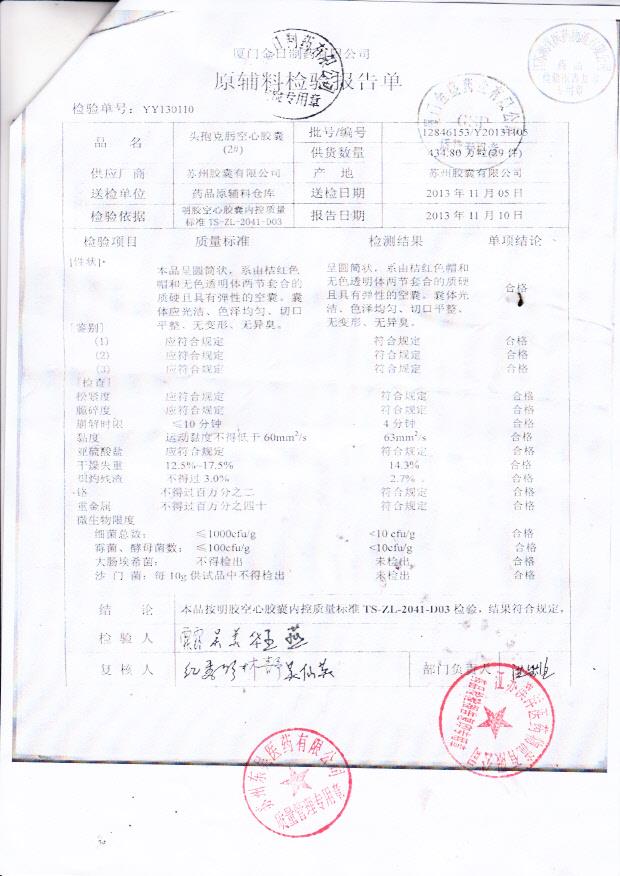 厦门金日制药有限公司
原辅料检验报告单
检验单号：YY130110
品 名 头孢克肟空心胶囊 (2#) 批号/编号 12846153/Y2013H05
供货数量 434.80 万粒(29 件)
供应厂商 苏州胶囊有限公司 产 地 苏州胶囊有限公司
送检单位 药品原辅料仓库 送检日期 2013 年 11 月 05 日
检验依据 明胶空心胶囊内控质量标准 TS-ZL-2041-D03 报告日期 2013 年 11 月 10 日
检验项目 质量标准 检测结果 单项结论
[性状]
本品呈圆筒状，系由桔红色 呈圆筒状，系由桔红色帽和
帽和无色透明体两节套合的 无色透明体两节套合的质硬
质硬且具有弹性的空囊。囊 且具有弹性的空囊。囊体光 合格
体应光洁、色泽均匀、切口 洁、色泽均匀、切口平整、
平整、无变形、无异臭。 无变形、无异臭。
[鉴别]
(1) 应符合规定 符合规定 合格
(2) 应符合规定 符合规定 合格
(3) 应符合规定 符合规定 合格
[检查]
松紧度 应符合规定 符合规定 合格
脆碎度 应符合规定 符合规定 合格
崩解时限 ≤10 分钟 4 分钟 合格
黏度 运动黏度不得低于 60mm²/s 63mm²/s 合格
亚硫酸盐 应符合规定 符合规定 合格
干燥失重 12.5%~17.5% 14.3% 合格
炽灼残渣 不得过 3.0% 2.7% 合格
铬 不得过百万分之二 符合规定 合格
重金属 不得过百万分之四十 符合规定 合格
微生物限度
细菌总数： ≤1000cfu/g <10 cfu/g 合格
霉菌、酵母菌数： ≤100cfu/g <10cfu/g 合格
大肠埃希菌： 不得检出 未检出 合格
沙 门 菌：每 10g 供试品中不得检出 未检出 合格
结 论 本品按明胶空心胶囊内控质量标准 TS-ZL-2041-D03 检验，结果符合规定。
检 验 人
复 核 人 部门负责人
质量管理专用章